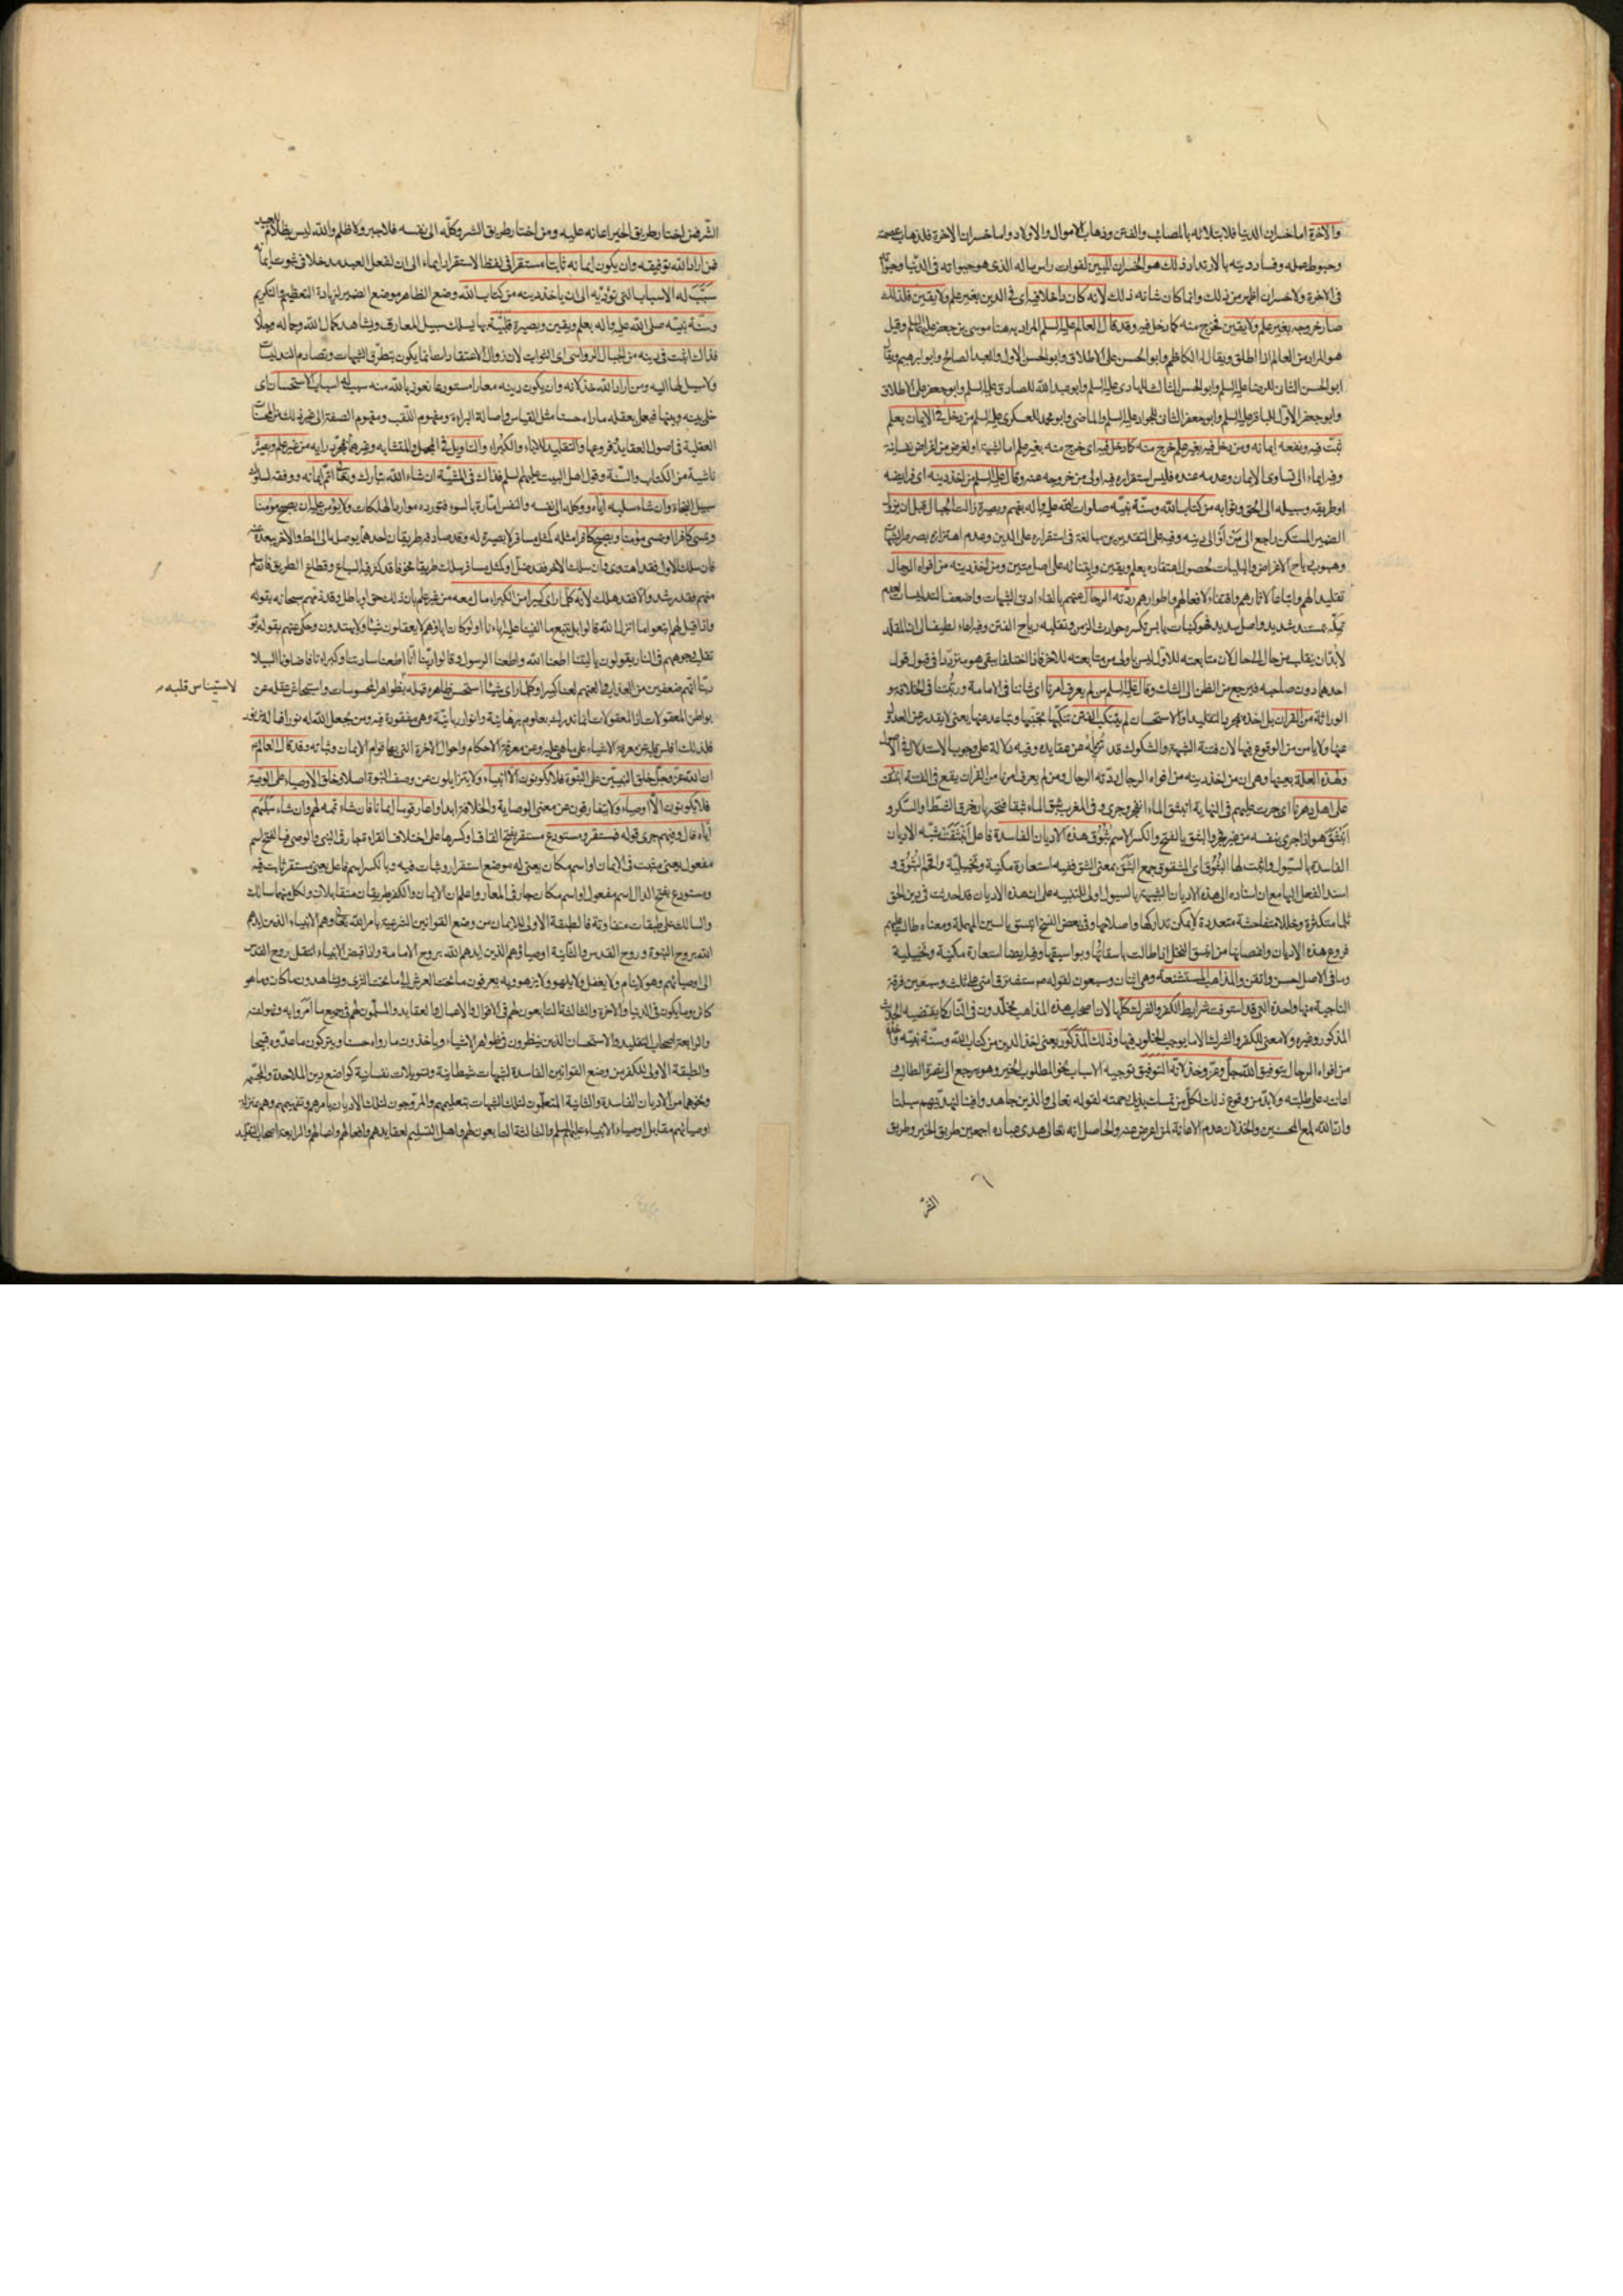 والآخرة اما خسران الدنيا فلابتلائه بالمصائب والفتن وذهاب الاموال والاولاد واما خسران الآخرة فلذهاب عصمته
وحبوط عمله وفساد دينه بالارتداد ذلك هو الخسران المبين لفوات راس ماله الذي هو حيوته في الدنيا
في الآخرة ولا خسران اظهر من ذلك وانما كان شانه ذلك لانه كان داخلا فيه اي في الدين بغير علم ولا يقين فلذلك
صار خروجه بغير علم ولا يقين فخرج منه كما دخل فيه وقد قال العالم عليه السلم المراد به هنا موسى بن جعفر عليهما السلم وقيل
هو المراد من العالم اذا اطلق ويقال له الكاظم وابو الحسن على الاطلاق وابو الحسن الاول والعبد الصالح وابو ابرهيم ويقال
ابو الحسن الثاني للرضا عليه السلم وابو الحسن الثالث للهادي عليه السلم وابو عبد الله للصادق عليه السلم وابو جعفر على الاطلاق
وابو جعفر الاول للباقر عليه السلم وابو جعفر الثاني للجواد عليه السلم والماضي وابو محمد للعسكري عليه السلم من دخل في الايمان بعلم
ثبت فيه ونفعه ايمانه ومن دخل فيه بغير علم خرج منه كما دخل فيه اي خرج منه بغير علم اما لشبهة او لغرض من اغراض نفسانية
وفيه ايماء الى تساوي الايمان وعدمه عنده فليس استقراره فيه اولى من خروجه عنه وقال عليه السلم من اخذ دينه اي فرايضه
او طريقه وسبيله الى الحق وثوابه من كتاب الله وسنة نبيه صلوات الله عليه وآله بفهم وبصيرة زالت الجبال قبل ان يزول
الضمير المستكن راجع الى من او الى دينه وفيه على التقديرين مبالغة في استقراره على الدين وعدم اهتزازه
وهبوب رياح الاغراض والبليات لحصول اعتقاده بعلم ويقين وابتنائه على اصل متين ومن اخذ دينه من افواه الرجال
تقليدا لهم واتباعا لاثارهم واقتفاء لافعالهم واطوارهم ردته الرجال عنهم بالقاء ادنى الشبهات واضعف التدليسات لعدم
تمسكه بمستند شديد واصل سديد فهو كنبات يابس تكسره حوادث الزمن وتقلبه رياح الفتن وفيه ايماء لطيف الى ان المقلد
لابد ان ينقلب من حال الى حال لان متابعته للاول ليس باولى من متابعته للاخر فاذا اختلفا بقي هو مترددا في قبول قول
احدهما دون صاحبه فيرجع من الظن الى الشك وقال عليه السلم من لم يعرف امرنا اي شاننا في الامامة ورتبتنا في الخلافة و
الوراثة من القران بل اخذه بمجرد التقليد او الاستحسان لم يتنكب الفتن تنكبها تجنبها وتباعد عنها يعني لا يقدر على العدول
عنها ولا يامن من الوقوع فيها لان فتنة الشبهة والشكوك قد تزيله عن عقايده وفيه دلالة على وجوب الاستدلال في الاصول
ولهذه العلة بعينها وهي ان من اخذ دينه من افواه الرجال ردته الرجال ومن لم يعرف امرنا من القران يقع في الفتنة انبثقت
على اهل دهرنا اي جرت عليهم في النهاية انبثق الماء انفجر وجرى وفي المغرب بثق الماء بثقا فتحه بان خرق الشط او السكر و
انبثق هو اذا جرى بنفسه من غير فجر والبثق بالفتح والكسر الاسم بثوق هذه الاديان الفاسدة فاعل انبثقت شبه الاديان
الفاسدة بالسيول واثبت لها البثوق اي الشقوق جمع البثق بمعنى الشق ففيه استعارة مكنية وتخييلية
اسند الفعل اليها مع ان اسناده الى هذه الاديان الشبيهة بالسيول اولى للتنبيه على ان هذه الاديان قد احدثت في دين الحق
ثلما متكثرة وخللا متفاحشة متعددة لا يمكن تداركها واصلاحها وفي بعض النسخ اتسق بالسين المهملة ومعناه طالت عليهم
فروع هذه الاديان واغصانها من بسق النخل اذا طالت باسقاتها وبواسقها وفيه ايضا استعارة مكنية وتخييلية
وما في الاصل احسن واتقن والمذاهب المستشنعة وهي اثنان وسبعون لقوله ص ستفترق امتي على ثلث وسبعين فرقة
الناجية منها واحدة التي قد استوفت شرايط الكفر والشرك كلها لان اصحاب هذه المذاهب مخلدون في النار كما يقتضيه الحديث
المذكور وغيره ولا معنى للكفر والشرك الا ما يوجب الخلود فيها وذلك المذكور يعني اخذ الدين من كتاب الله وسنة نبيه
من افواه الرجال بتوفيق الله جل وعز وخذلانه التوفيق توجيه الاسباب نحو المطلوب الخير وهو يرجع الى نصرة الطالب
اعانته على طلبته ولابد من وقوع ذلك لكل من تمسك بذيل رحمته لقوله تعالى والذين جاهدوا فينا لنهدينهم سبلنا
وان الله لمع المحسنين والخذلان عدم الاعانة لمن اعرض عنه والحاصل انه تعالى هدى عباده اجمعين طريق الخير وطريق
الشر
الشر فمن اختار طريق الخير اعانه عليه ومن اختار طريق الشر وكله الى نفسه فلا جبر ولا ظلم والله ليس بظلام للعبيد
فمن اراد الله توفيقه وان يكون ايمانه ثابتا مستقرا في لفظ الاستقرار ايماء الى ان لفعل العبد مدخلا في ثبوت ايمانه
سبب له الاسباب التي تؤديه الى ان ياخذ دينه من كتاب الله وضع الظاهر موضع الضمير لزيادة التعظيم والتكريم
وسنة نبيه صلى الله عليه وآله بعلم ويقين وبصيرة قلبية بها يسلك سبيل المعارف ويشاهد كمال الله وجماله وجلاله
فذاك اثبت في دينه من الجبال الرواسي اي الثوابت لان زوال الاعتقادات انما يكون بتطرق الشبهات وتصادم التدليسات
ولا سبيل لها اليه ومن اراد الله خذلانه وان يكون دينه معارا مستودعا نعوذ بالله منه سبب له اسباب الاستحسان اي
خلى بينه وبينها فيجعل بعقله ما راه حسنا مثل القياس واصالة البراءة ومفهوم اللقب ومفهوم الصفة الى غير ذلك من المحسنات
العقلية في اصول العقايد وفروعها والتقليد للاباء والكبراء والتاويل في المجمل والمتشابه وغيرهما بمجرد رايه من غير علم وبصيرة
ناشية من الكتاب والسنة وقول اهل البيت عليهم السلم فذاك في المشية ان شاء الله تبارك وتعالى اتم ايمانه ووفقه لسلوك
سبيل النجاة وان شاء سلبه اياه ووكله الى نفسه والنفس امارة بالسوء فتورده موارد الهلكات ولا يؤمن عليه ان يصبح مؤمنا
ويمسي كافرا او يمسي مؤمنا ويصبح كافرا مثله كمثل مسافر لا بصيرة له وقد صادفه طريقان احدهما يوصله الى المط والاخر يبعده عنه
فان سلك الاول فقد اهتدى وان سلك الاخر فقد ضل او كمثل مسافر سلك طريقا مخوفا قد كثر فيه السباع وقطاع الطريق فان سلم
منهم فقد رشد والا فقد هلك لانه كلما راى كبيرا من الكبراء مال معه من غير علم بان ذلك حق او باطل وقد ذمهم سبحانه بقوله
واذا قيل لهم اتبعوا ما انزل الله قالوا بل نتبع ما الفينا عليه اباءنا اولو كان اباؤهم لا يعقلون شيئا ولا يهتدون وحكى عنهم بقوله يوم
تقلب وجوههم في النار يقولون يا ليتنا اطعنا الله واطعنا الرسول وقالوا ربنا انا اطعنا سادتنا وكبراءنا فاضلونا السبيلا
ربنا اتهم ضعفين من العذاب والعنهم لعنا كبيرا وكلما راى شيئا استحسن ظاهره قبله بظواهر المحسوسات واستيحاش عقله عن
لاستيناس قلبه
بواطن المعقولات اذ المعقولات انما تدرك بعلوم برهانية وانوار ربانية وهي مفقودة فيه ومن لم يجعل الله له نورا فما له من نور
فلذلك افلس عن معرفة الاشياء على ما هي عليه وعن معرفة الاحكام واحوال الآخرة التي بها قوام الايمان وثباته وقد قال العالم
ان الله عز وجل خلق النبيين على النبوة فلا يكونون الا انبياء ولا يتزايلون عن وصف النبوة اصلا وخلق الاوصياء على الوصية
فلا يكونون الا اوصياء ولا يتفارقون عن معنى الوصاية والخلافة ابدا واعار قوما ايمانا فان شاء تممه لهم وان شاء سلبهم
اياه قال وفيهم جرى قوله فمستقر ومستودع مستقر بفتح القاف او كسرها على اختلاف القراءة جار في النبي والوصي فبالفتح اسم
مفعول يعني مثبت في الايمان او اسم مكان يعني له موضع استقرار وثبات فيه وبالكسر اسم فاعل يعني مستقر ثابت فيه
ومستودع بفتح الدال اسم مفعول او اسم مكان جار في المعار واعلم ان الايمان والكفر طريقان متقابلان ولكل منهما سالك
والسالك على طبقات متفاوتة فالطبقة الاولى للايمان من وضع القوانين الشرعية بامر الله تعالى وهم الانبياء الذين ايدهم
الله بروح النبوة وروح القدس والثانية اوصياؤهم الذين ايدهم الله بروح الامامة واذا قبض الانبياء انتقل روح القدس
الى اوصيائهم وهو لا ينام ولا يغفل ولا يلهو ولا يزهو وبه يعرفون ما تحت العرش الى ما تحت الثرى ويشاهدون ما كان وما هو
كائن وما يكون في الدنيا والآخرة والثالثة التابعون لهم في الاقوال والاعمال والعقايد والمسلمون لهم في جميع ما امروا به ونهوا عنه
والرابعة اصحاب التقليد والاستحسان الذين ينظرون في ظواهر الاشياء وياخذون ما راوه حسنا ويتركون ما عدوه قبيحا
والطبقة الاولى للكفر من وضع القوانين الفاسدة لشبهات شيطانية وتسويلات نفسانية كواضع دين الملاحدة والمجسمة
ونحوهما من الاديان الفاسدة والثانية المتعلمون لتلك الشبهات بتعليمهم والمروجون لتلك الاديان بامرهم وتفهيمهم وهم بمنزلة
اوصيائهم مقابل اوصياء الانبياء عليهم السلم والثالثة التابعون لهم واهل التسليم لعقايدهم وافعالهم واعمالهم والرابعة اصحاب التقليد